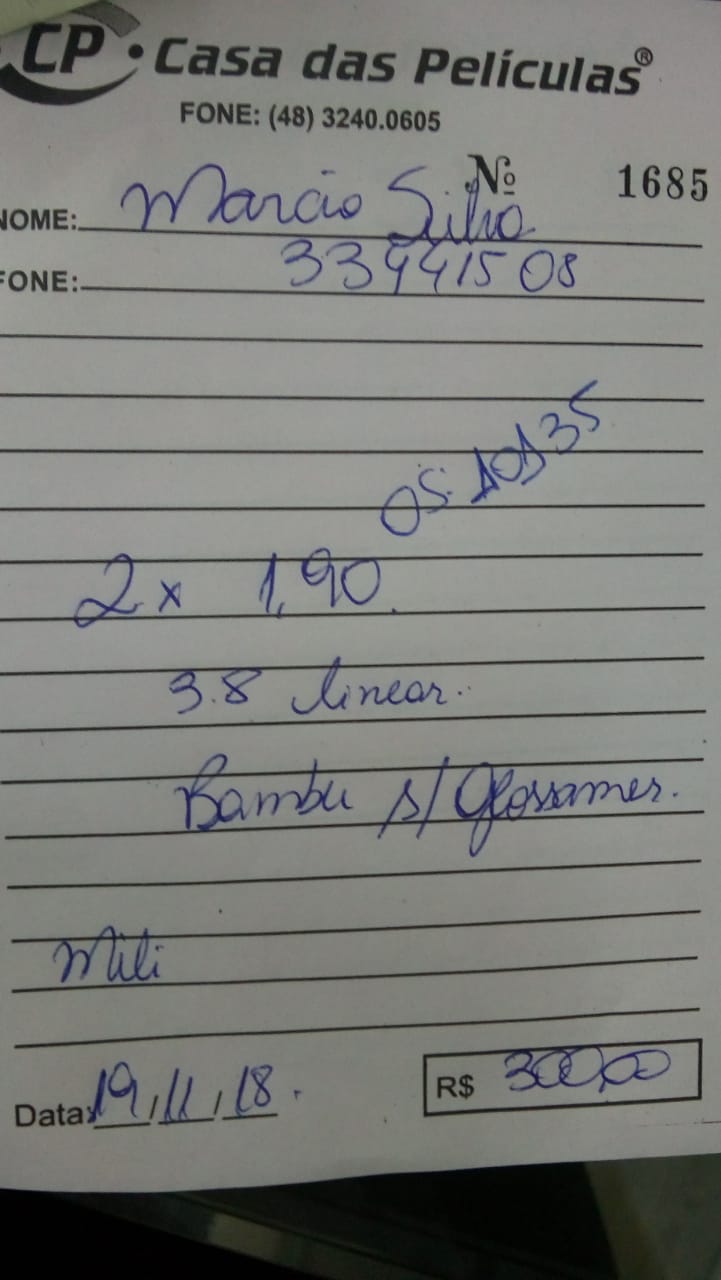 CP · Casa das Películas®
FONE: (48) 3240.0605
Nº 1685
NOME: Marcio Silva
FONE: 33441508
OS: 10135
2 x 1,90.
3.8 linear.
Bambu s/
Mili
Data: 19/11/18. R$ 300,00